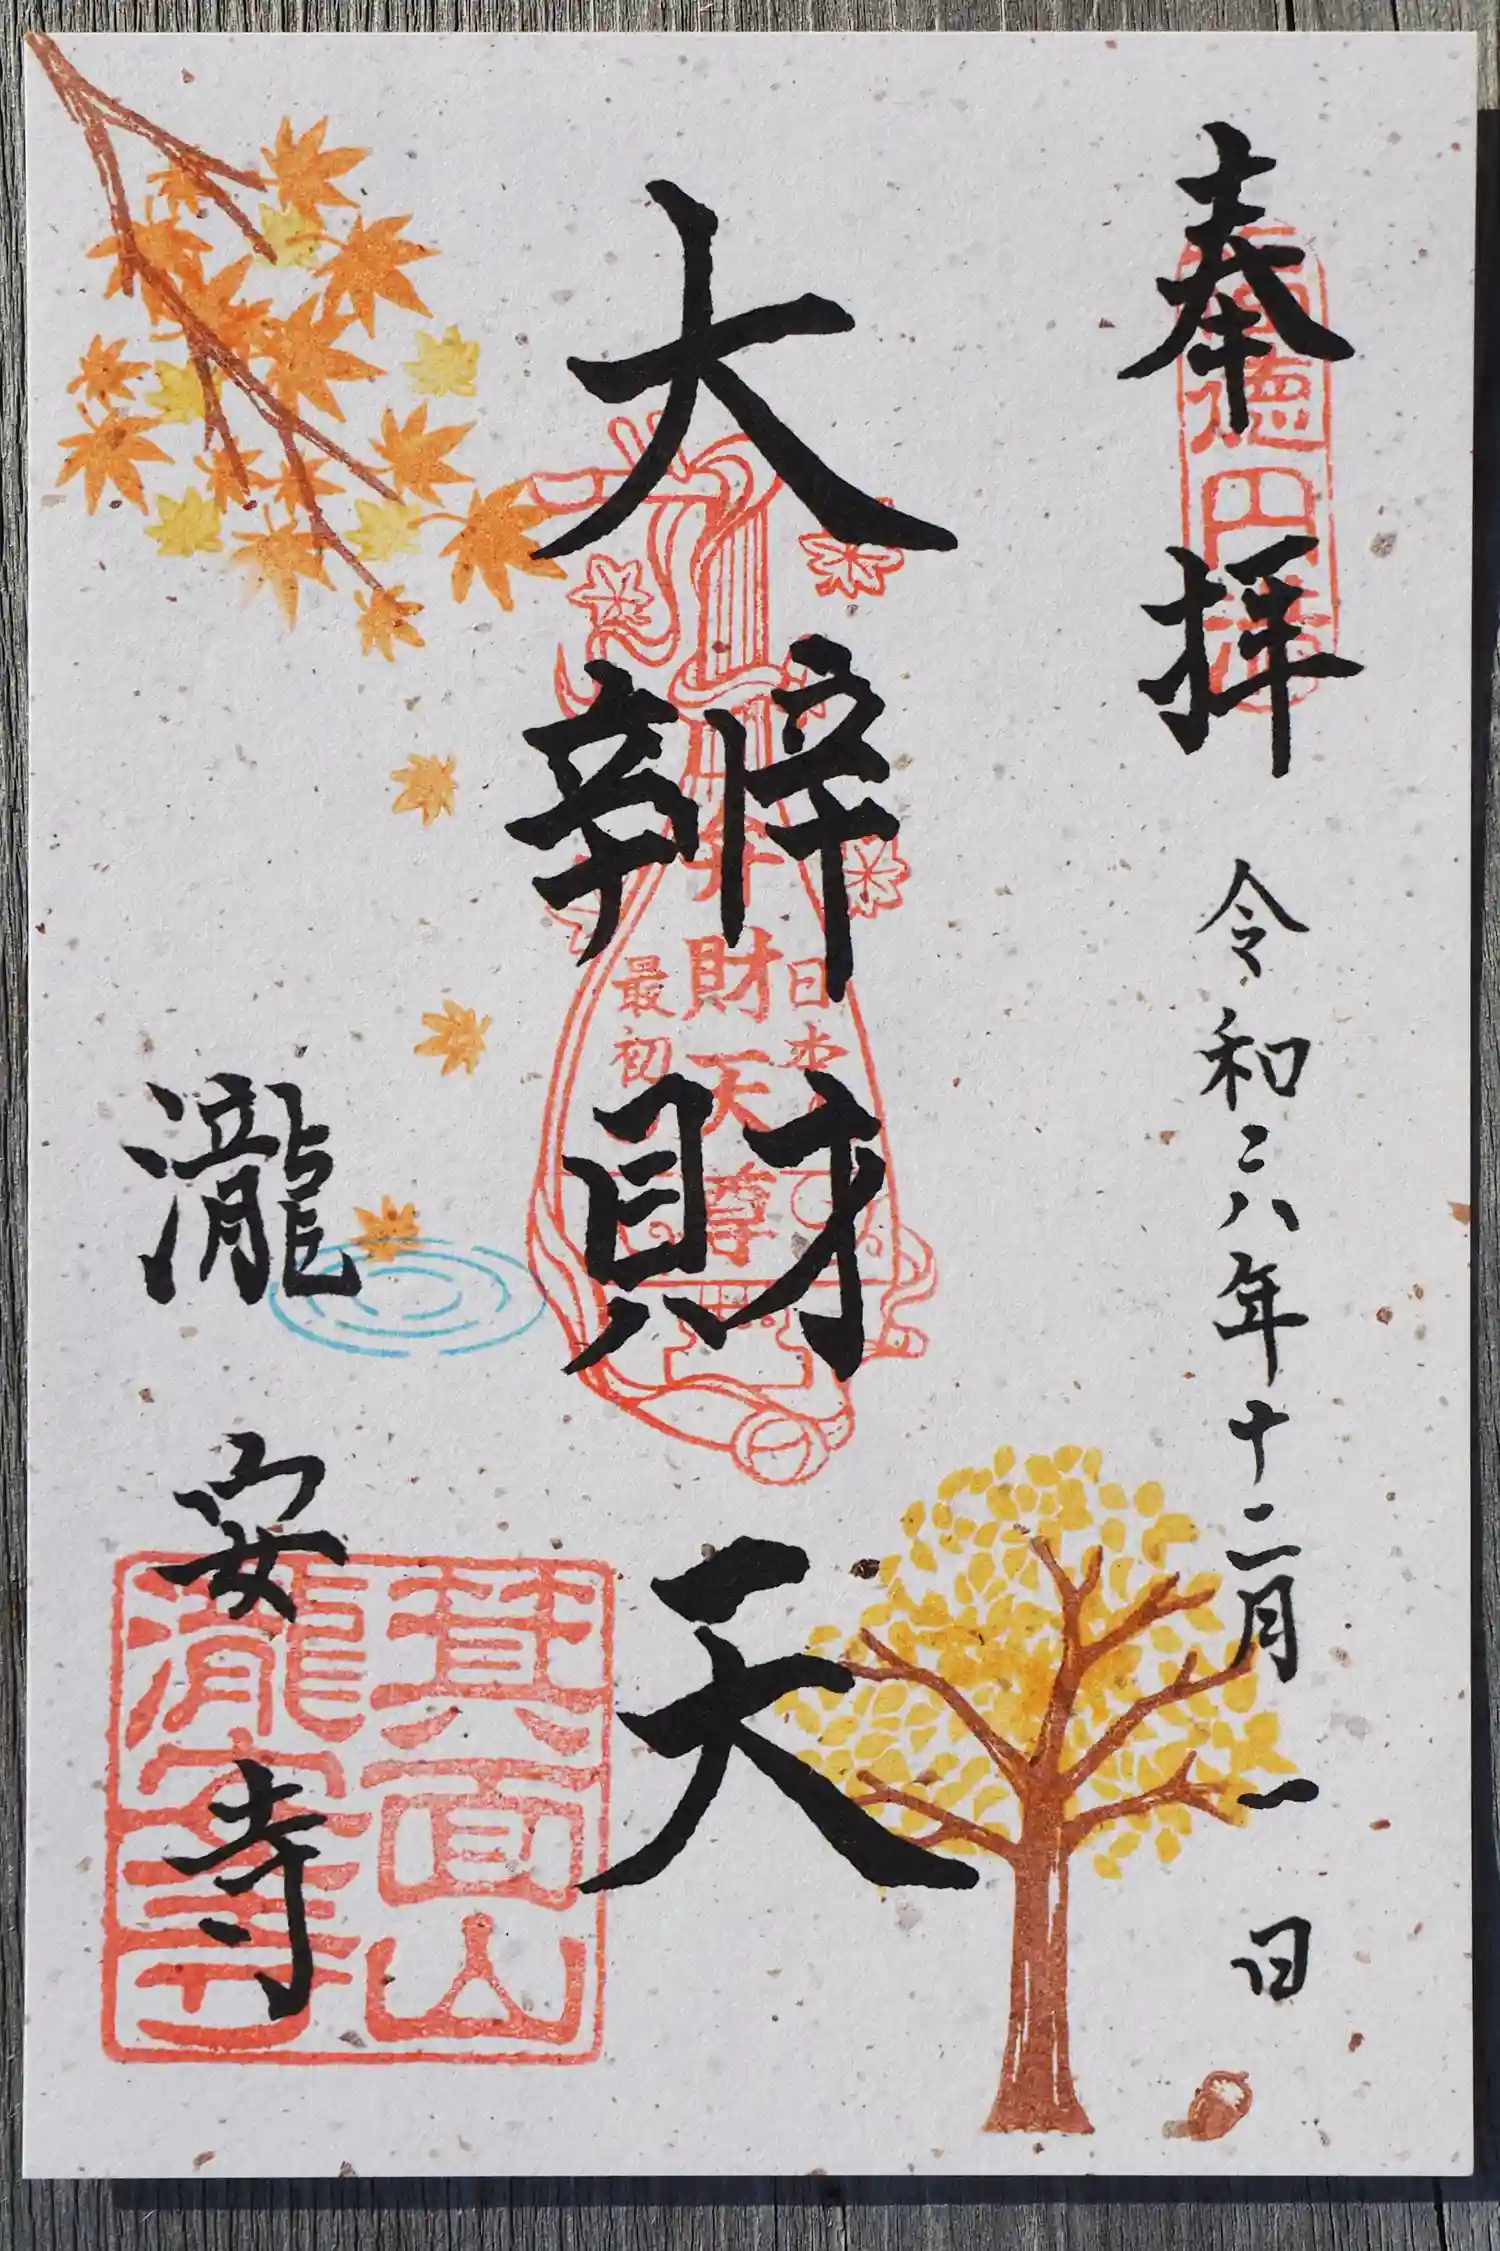 奉拝
令和六年十二月一日
大辨財天
瀧安寺
福徳円満
日本
弁財天尊
最初
箕面山
瀧安寺